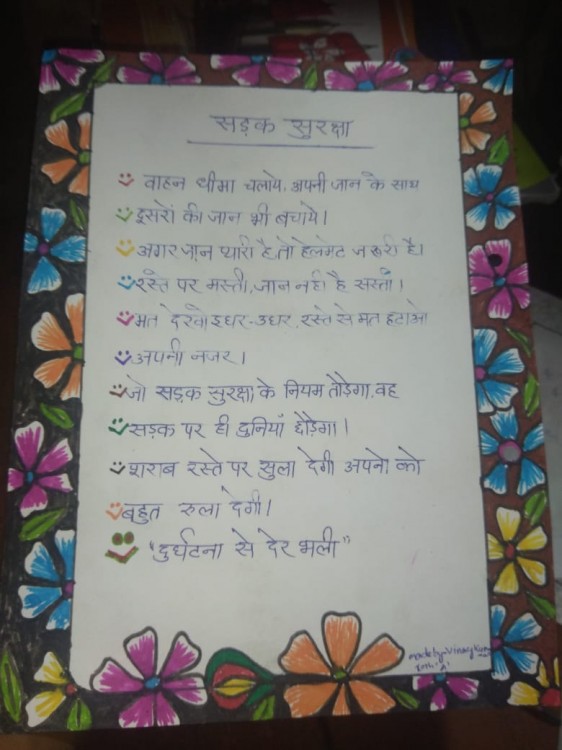 सड़क सुरक्षा
वाहन धीमा चलाये, अपनी जान के साथ
दूसरों की जान भी बचाये।
अगर जान प्यारी है,तो हेलमेट जरूरी है।
रस्ते पर मस्ती, जान नही है सस्ती।
मत देखो इधर-उधर, रस्ते से मत हटाओ
अपनी नजर।
जो सड़क सुरक्षा के नियम तोड़ेगा, वह
सड़क पर ही दुनियाँ छोड़ेगा।
शराब रस्ते पर सुला देगी अपनो को
बहुत रुला देगी।
"दुर्घटना से देर भली"
made by-Vinay
'A'